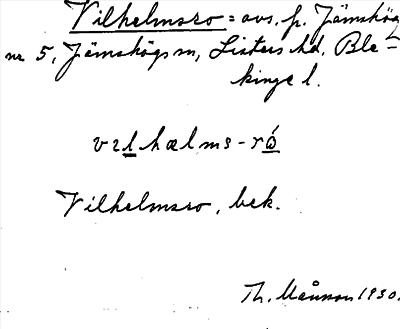 Vilhelmsro = avs. fr. Jämshög
nr 5, Jämshögs sn, Listers hd, Ble-
kinge l.
vɪlhælms-rό
Vilhelmsro, bek.
Th. Månsson 1930.